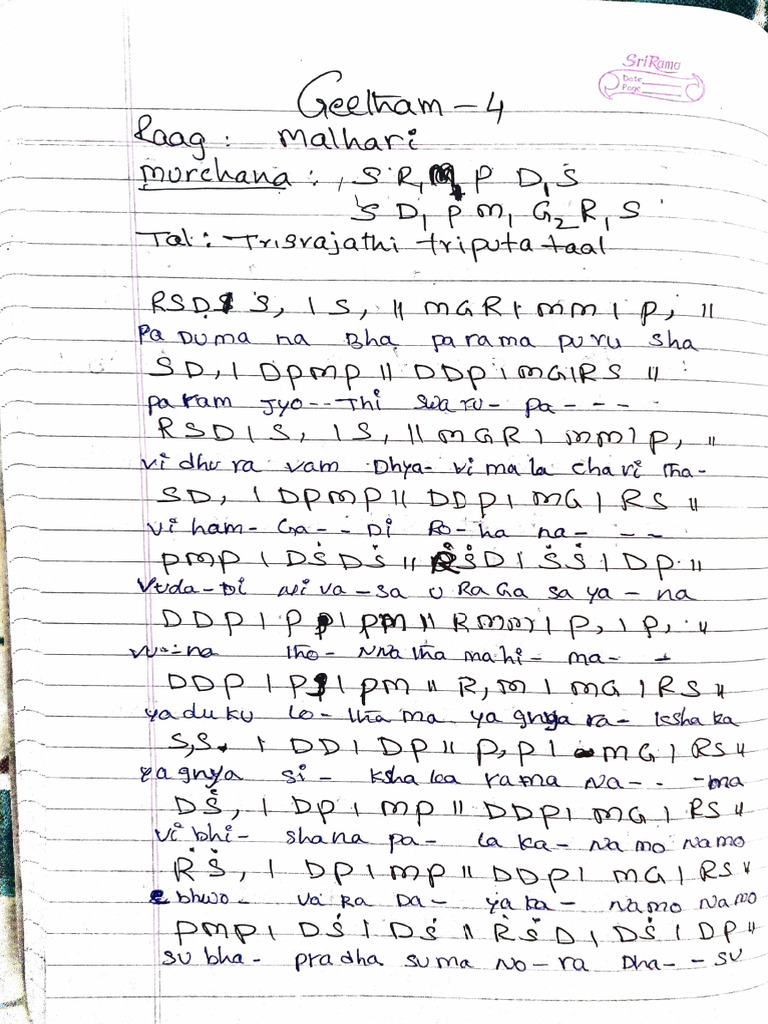 SriRama
Date
Page
Geetham - 4
Raag : Malhari
Murchana : , S R₁ M₁ P D₁ Ṡ
Ṡ D₁ P M₁ G₂ R₁ S
Tal : Trisrajathi triputa taal
RSD Ṡ, | S, || MGR | MM | P, ||
Pa Duma na Bha parama puru sha
SD, | DPMP || DDP | MG|RS ||
param Jyo--Thi swaru- pa- - -
RSD | S, | S, || MGR | MM | P, ||
vidhura vam Dhya- vimala chari tha-
SD, | DPMP || DDP | MG | RS ||
viham- Ga- - Di Ro-ha na- - -
PMP | DṠDṠ || ṘṠD | ṠṠ | DP ||
Vuda-Di Niva-sa u RaGa saya-na
DDP | P, | PM || RMM | P, | P, ||
tho- NNatha mahi- ma- -
DDP | P, | PM || R,M | MG | RS ||
yaduku lo-thama yagnya ra- kshaka
S,S | DD | DP || P,P | MG | RS ||
yagnya si- kshaka rama Na-- -ma
DṠ, | DP | MP || DDP | MG | RS ||
vibhi- shana pa- la ka- Namo Namo
ṘṠ, | DP | MP || DDP | MG | RS ||
bhwo- va Ra Da- yaka- Namo Namo
PMP | DṠ | DṠ || ṘṠD | DṠ | DP ||
subha- pradha suma No-ra Dha--su